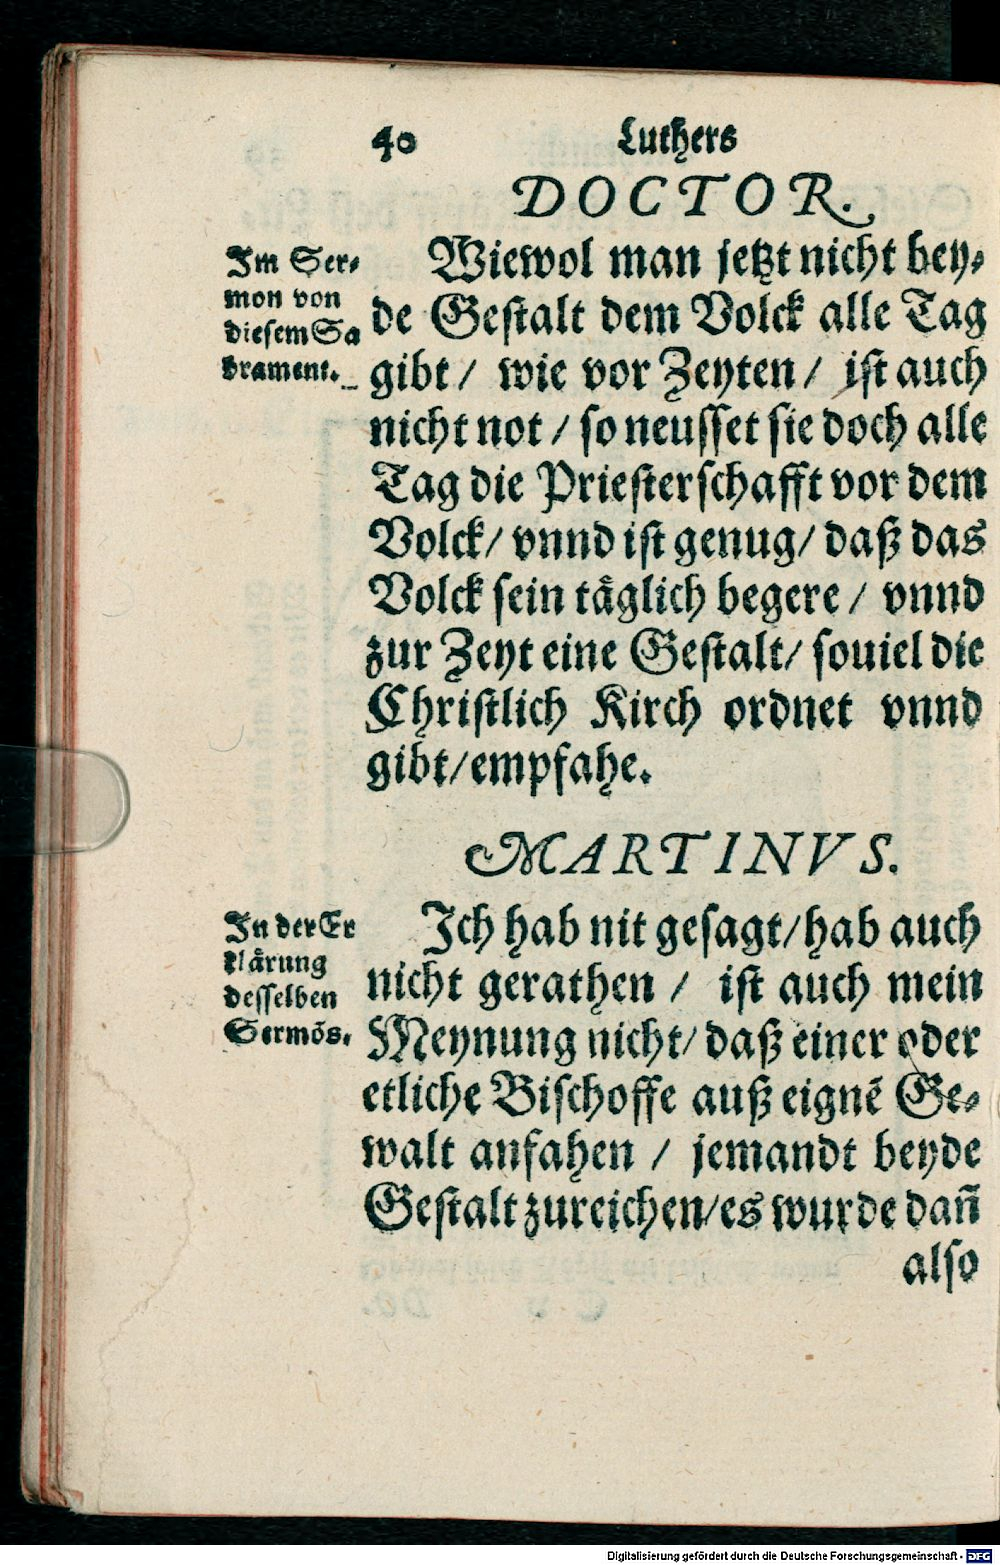 40 Luthers
DOCTOR.
Im Ser-
mon von
diesem Sa
crament.
Wiewol man jetzt nicht bey-
de Gestalt dem Volck alle Tag
gibt / wie vor Zeyten / ist auch
nicht not / so neusset sie doch alle
Tag die Priesterschafft vor dem
Volck / vnnd ist genug / daß das
Volck sein täglich begere / vnnd
zur Zeyt eine Gestalt / souiel die
Christlich Kirch ordnet vnnd
gibt / empfahe.
MARTINVS.
In der Er
klärung
desselben
Sermōs.
Ich hab nit gesagt / hab auch
nicht gerathen / ist auch mein
Meynung nicht / daß einer oder
etliche Bischoffe auß eignē Ge-
walt anfahen / jemandt beyde
Gestalt zureichen / es wurde dañ
also
Digitalisierung gefördert durch die Deutsche Forschungsgemeinschaft - DFG